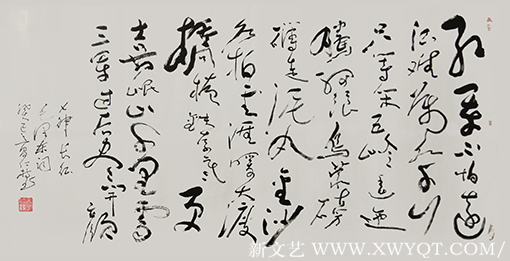 红军不怕远
征难万水千山
只等闲五岭逶迤
腾细浪乌蒙磅
礴走泥丸金沙
水拍云崖暖大渡
桥横铁索寒更
喜岷山千里雪
三军过后尽开颜
七律长征
毛泽东词
癸巳
新文艺 WWW.XWYQT.COM/